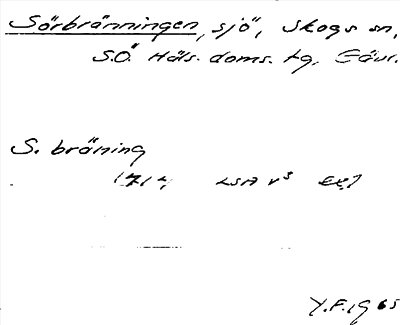 Sörbränningen, sjö, Skogs sn,
S.Ö. Häls. doms. tg, Gävl.
S. bräning
1714 LSA v⁵
Y.F. 1965